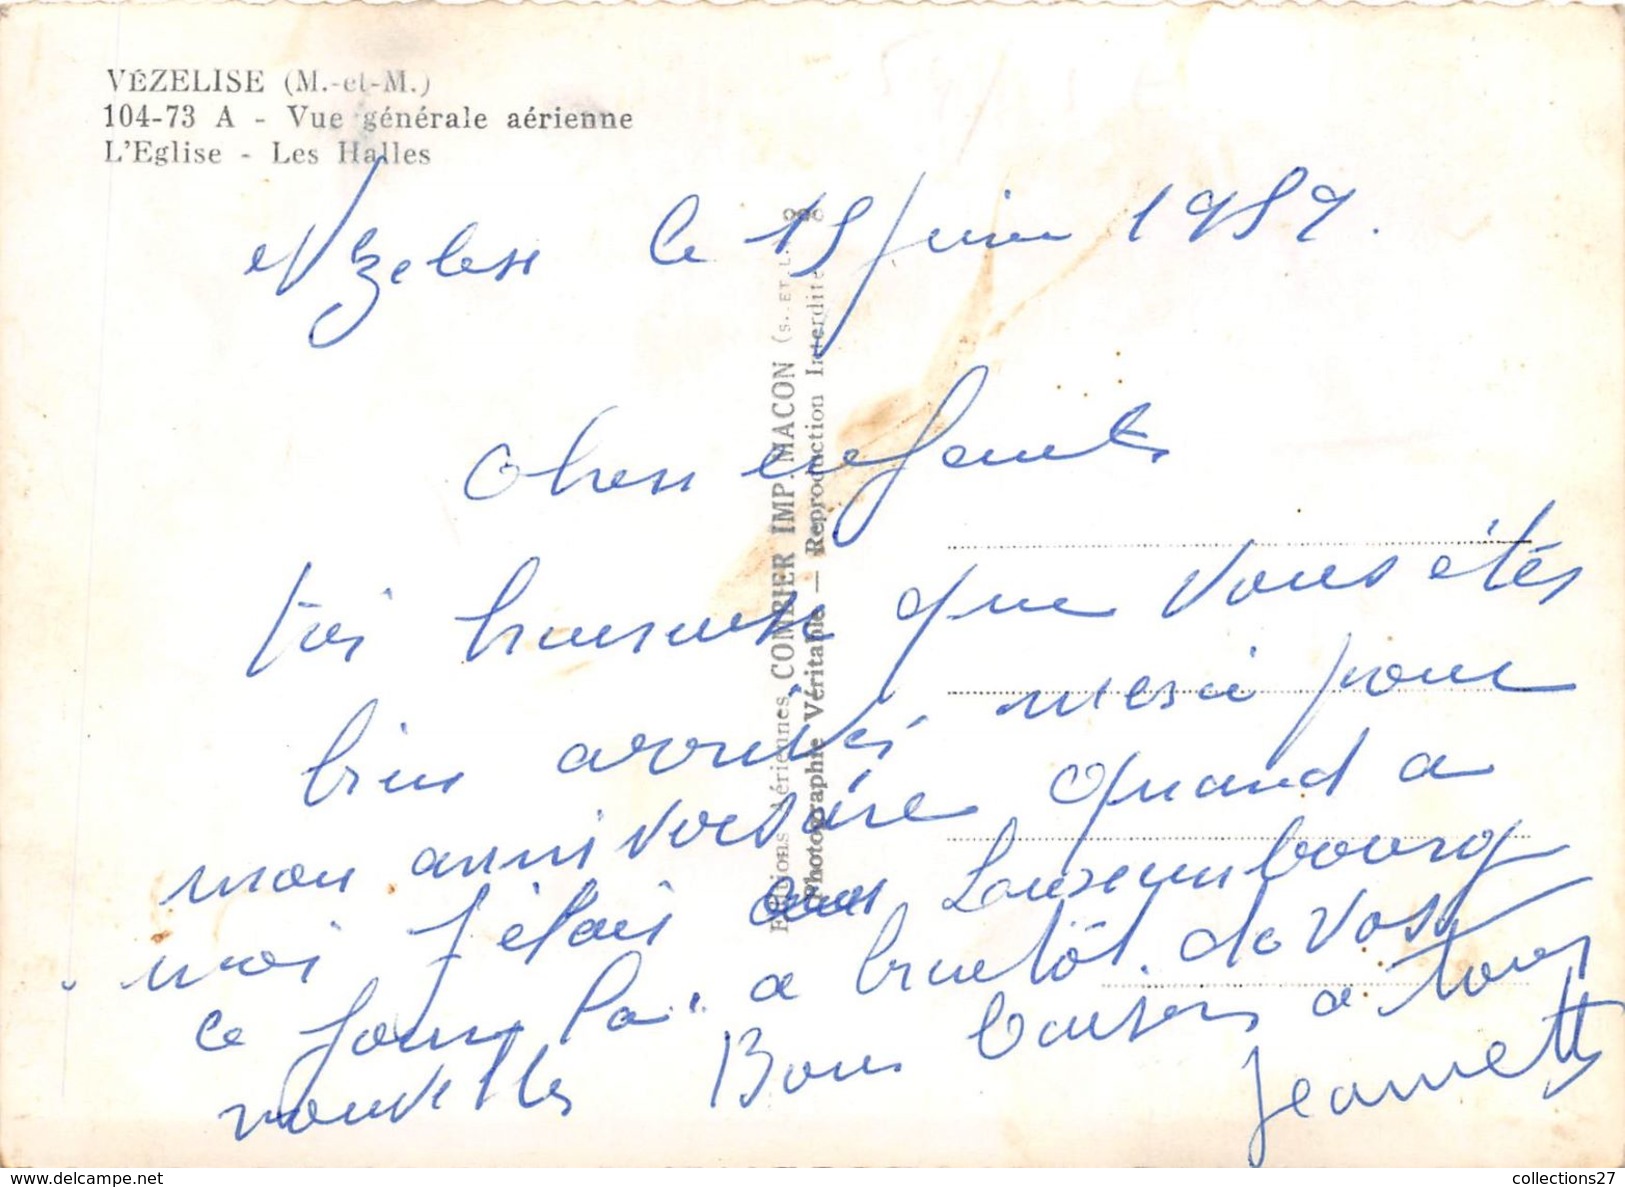 VÉZELISE (M.-et-M.)
104-73 A - Vue générale aérienne
L'Eglise - Les Halles
Vezelise le 15 juin 1989.
Chers enfants
très heureuse que vous êtes
bien arrivés merci pour
mon anniversaire quand a
moi j'étais au Luxembourg
ce jour la. a bientôt. de vos
nouvelles Bons baisers a tous
Jeannette
Editions aériennes COMBIER IMP. MACON (S. ET L.)
Photographie Véritable — Reproduction Interdite
collections27